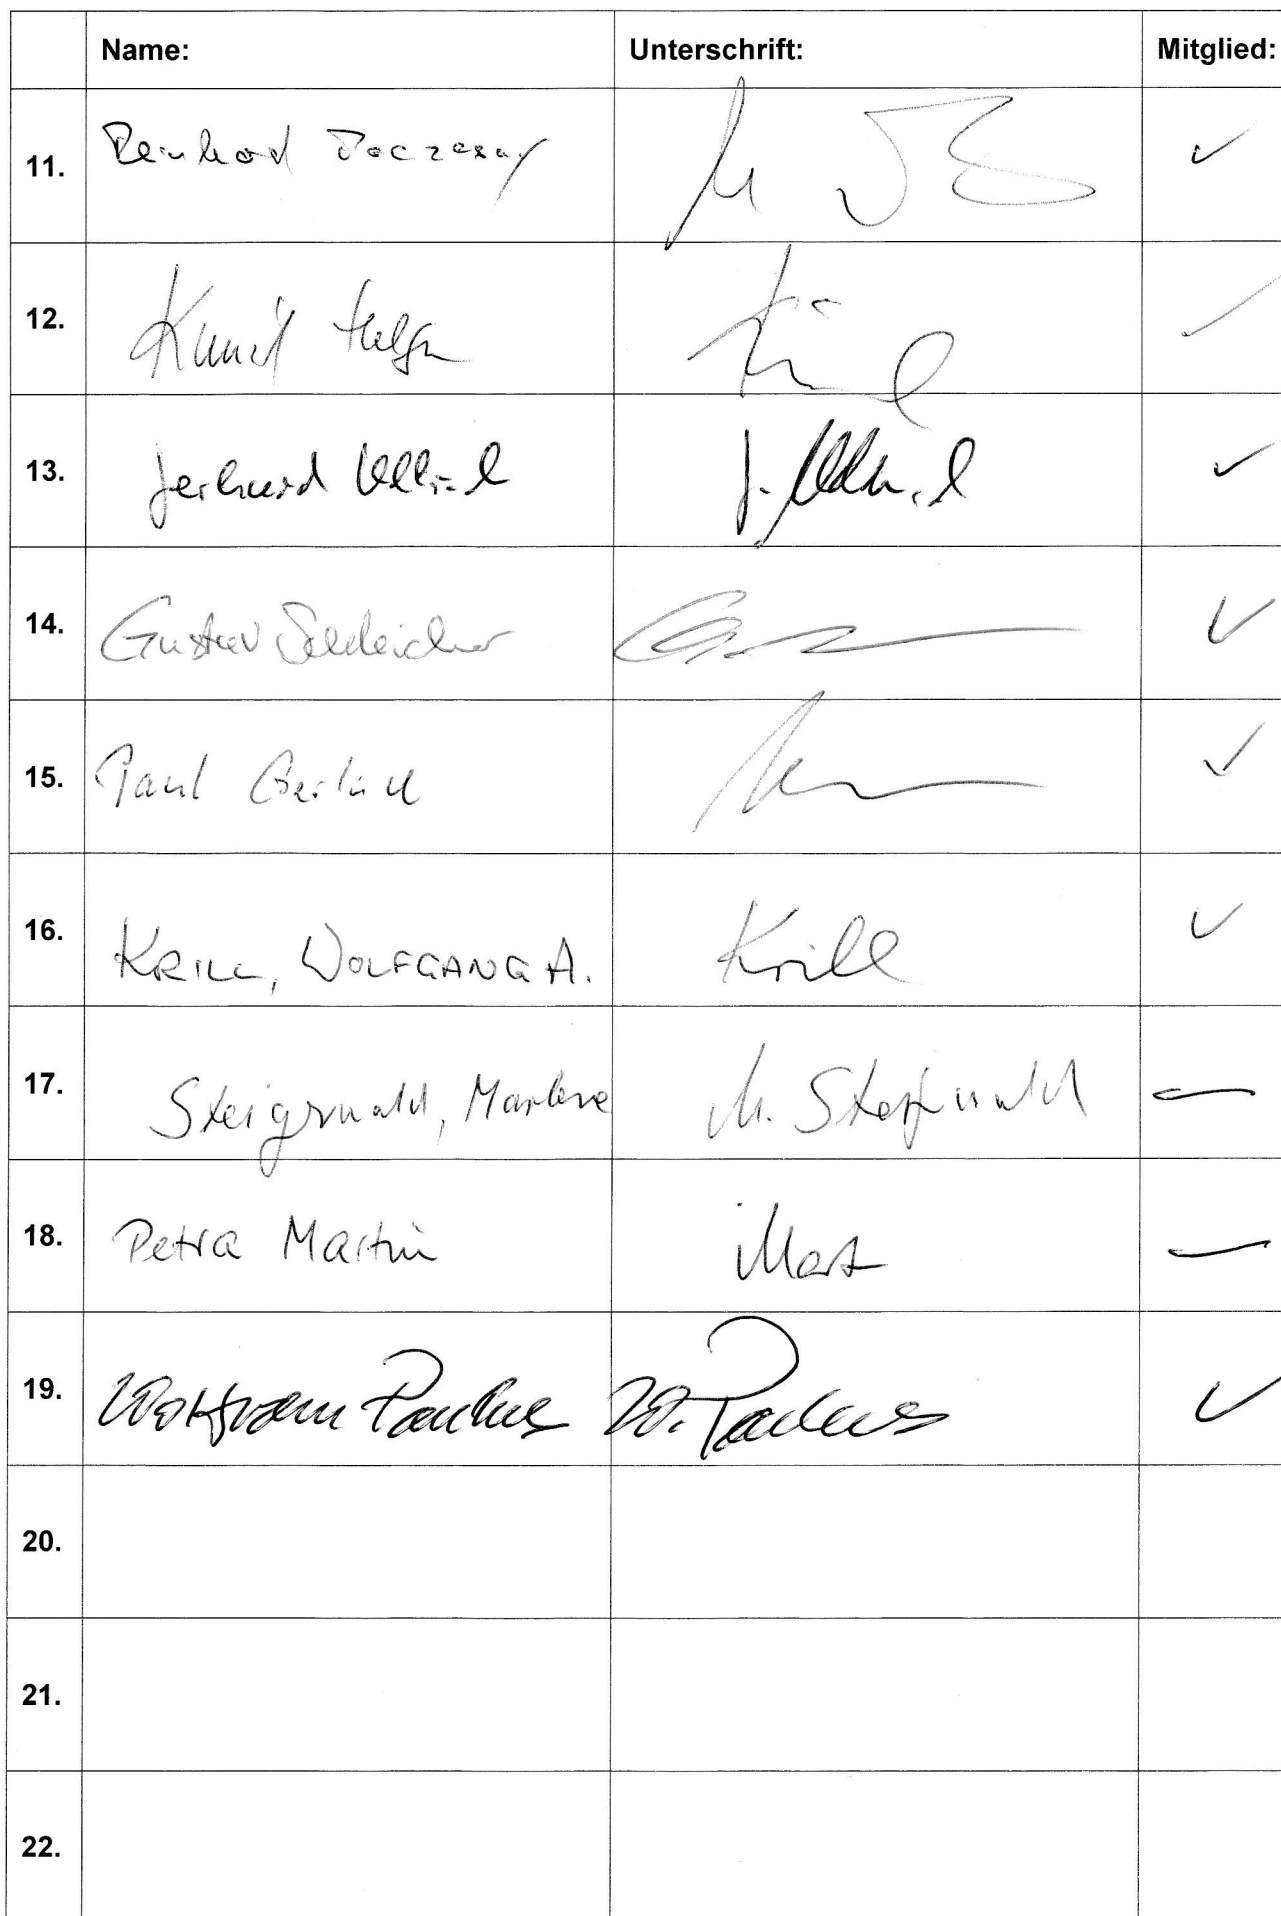 Name: Unterschrift: Mitglied:
11. Reinhard
12. Helga
13. Gerhard
14. Gustav Schleicher
15. Paul Gerlach
16. KRILL, WOLFGANG A. Krill
17. Steigerwald, Marlene M. Steigerwald
18. Petra Martin
19. Wolfram Paulus W. Paulus
20.
21.
22.